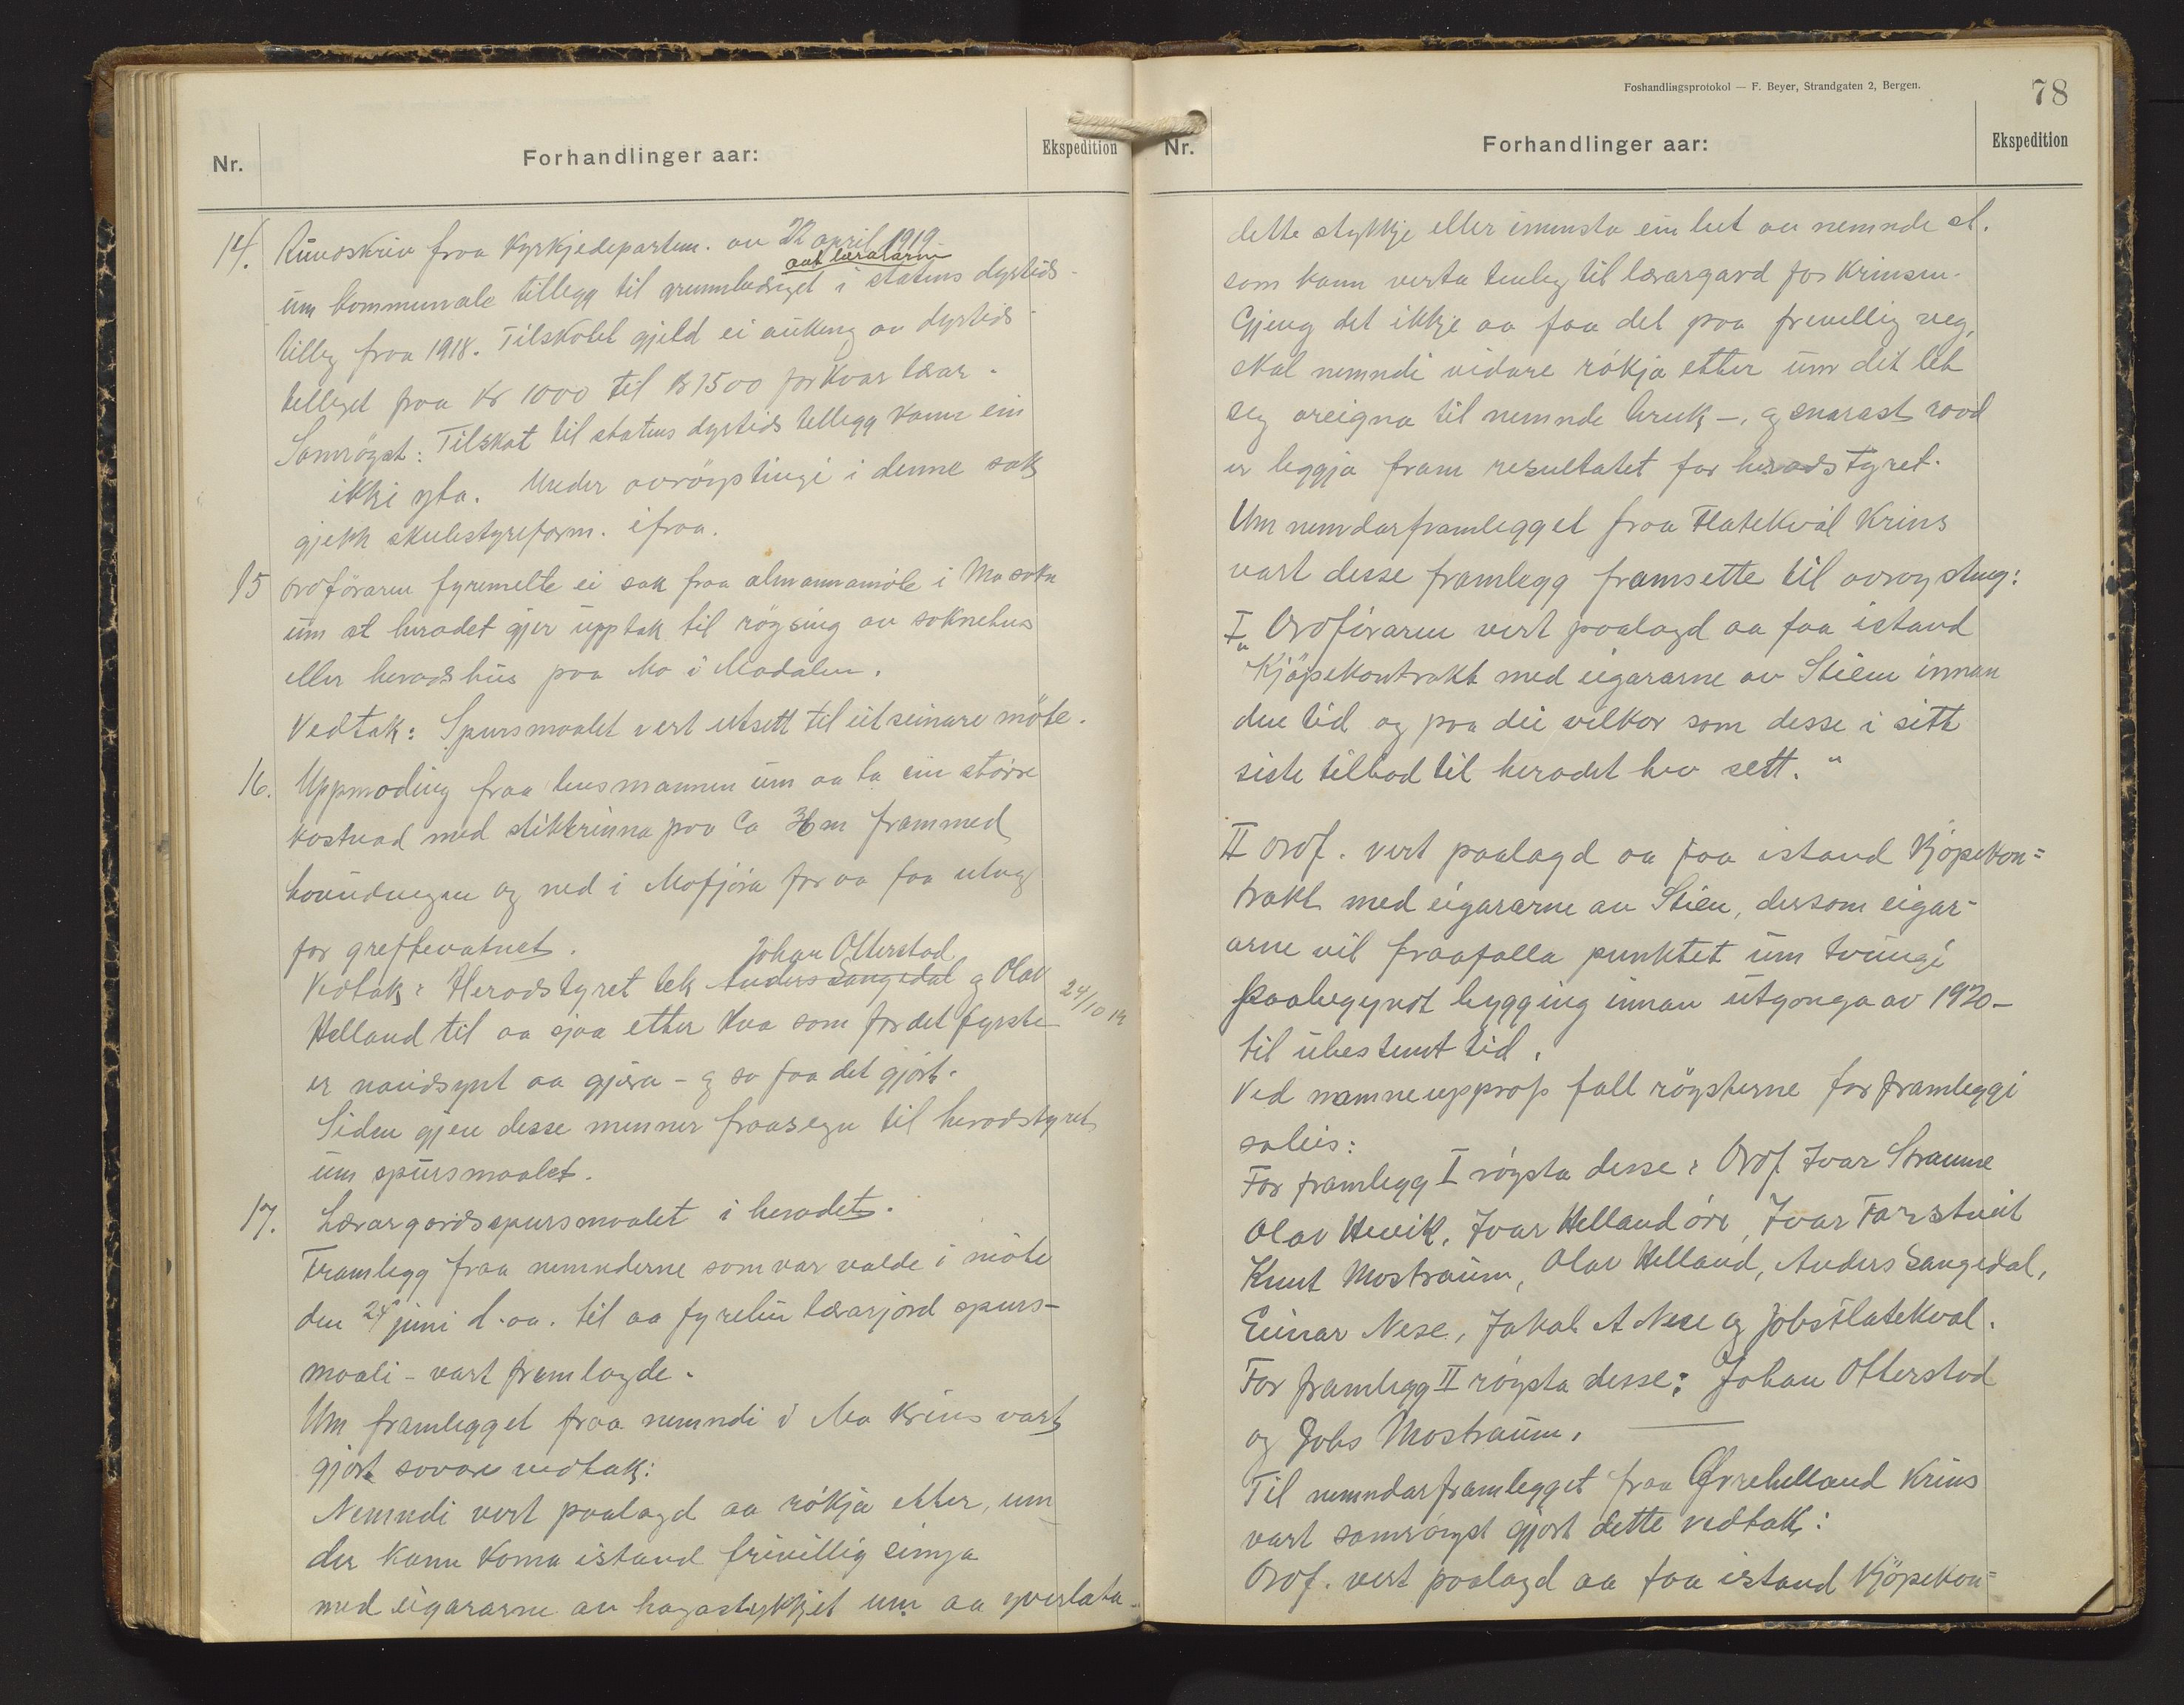 Nr.
Forhandlinger aar:
Ekspedition
14. Rundskriv fraa Kyrkjedepartem. av 22 april 1919
um kommunale tillegg til grunnlauget i statens dyrtids-
tillegg fraa 1918. Tilskotet gjeld ei auking av dyrtids-
tillegget fraa Kr 1000 til Kr 1500 for kvar lærar.
Samröyst: Tilskot til statens dyrtids tillegg kann ein
ikkje yta. Under avröystingi i denne sak
gjekk skulestyreform. ifraa.
15 Ordföraren fyremelte ei sak fraa almannamöte i Mo sokn
um at heradet gjer upptak til röysing av soknehus
eller heradshus paa Mo i Modalen.
Vedtak: Spursmaalet vert utsett til eit seinare möte.
16. Uppmoding fraa lensmannen um aa ta ein större
kostnad med stikkrinna paa Ca 30 m frammed
bouudnegen og ned i Mofjöra for aa faa utlog
for greftevatnet.
Johan Otterstad
Vedtak: Heradstyret tek Anders Langedal og Olav
24/10 19
Helland til aa sjaa etter kva som for det fyrste
er naudsynt aa gjera - og so faa det gjort.
Siden gjev desse menner fraasegn til heradstyret
um spursmaalet.
17. Lærargardsspursmaalet i heradet.
Framlegg fraa nemnderne som var valde i möte
den 24 juni d. aa. til aa fyrebu lærarjord spurs-
maali - vart framlagde.
Um framlegget fraa nemndi i Mo Krins vart
gjort sovore vedtak:
Nemndi vert paalagd aa rökja etter, um
der kann koma istand frivillig semja
med eigararne av hagastykkjet um aa yverlata
Foshandlingsprotokol — F. Beyer, Strandgaten 2, Bergen.
78
Nr.
Forhandlinger aar:
Ekspedition
dette stykkje eller iminsto ein lut av nemnde st.
som kann verta tenleg til lærargard for Krinsen.
Gjeng det ikkje aa faa det paa frivillig veg,
skal nemndi vidare rökja etter um det let
seg oreigna til nemnde bruk -, og snarast raad
er leggja fram resultatet for heradstyret.
Um nemndarframlegget fraa Flatekvål Krins
vart desse framlegg framsette til avroysting:
I Ordföraren vert paalagd aa faa istand
"Kjöpekontrakt med eigararne av Stien innan
den tid og paa dei vilkor som desse i sitt
siste tilbod til heradet hev sett."
II Ordf. vert paalagd aa faa istand Kjöpekon=
trakt med eigararne av Stien, dersom eigar-
arne vil fraafalla punktet um tvungi
paabegynt bygging innan utgonga av 1920 -
til ubestemt tid.
Ved namneupprop fall röysterne for framleggi
soleis:
For framlegg I röysta desse: Ordf Ivar Straume
Olav Hevik, Ivar Helland övr, Ivar Farestveit
Knut Mostraum, Olav Helland, Anders Langedal,
Einar Nese, Jakob A Nese og Johs Flatekval.
For framlegg II röysta desse: Johan Otterstad
og Johs Mostraum.
Til nemndarframlegget fraa Øvrehelland Krins
vart samröyst gjort dette vedtak:
Ordf. vert paalagd aa faa istand Kjöpekon=